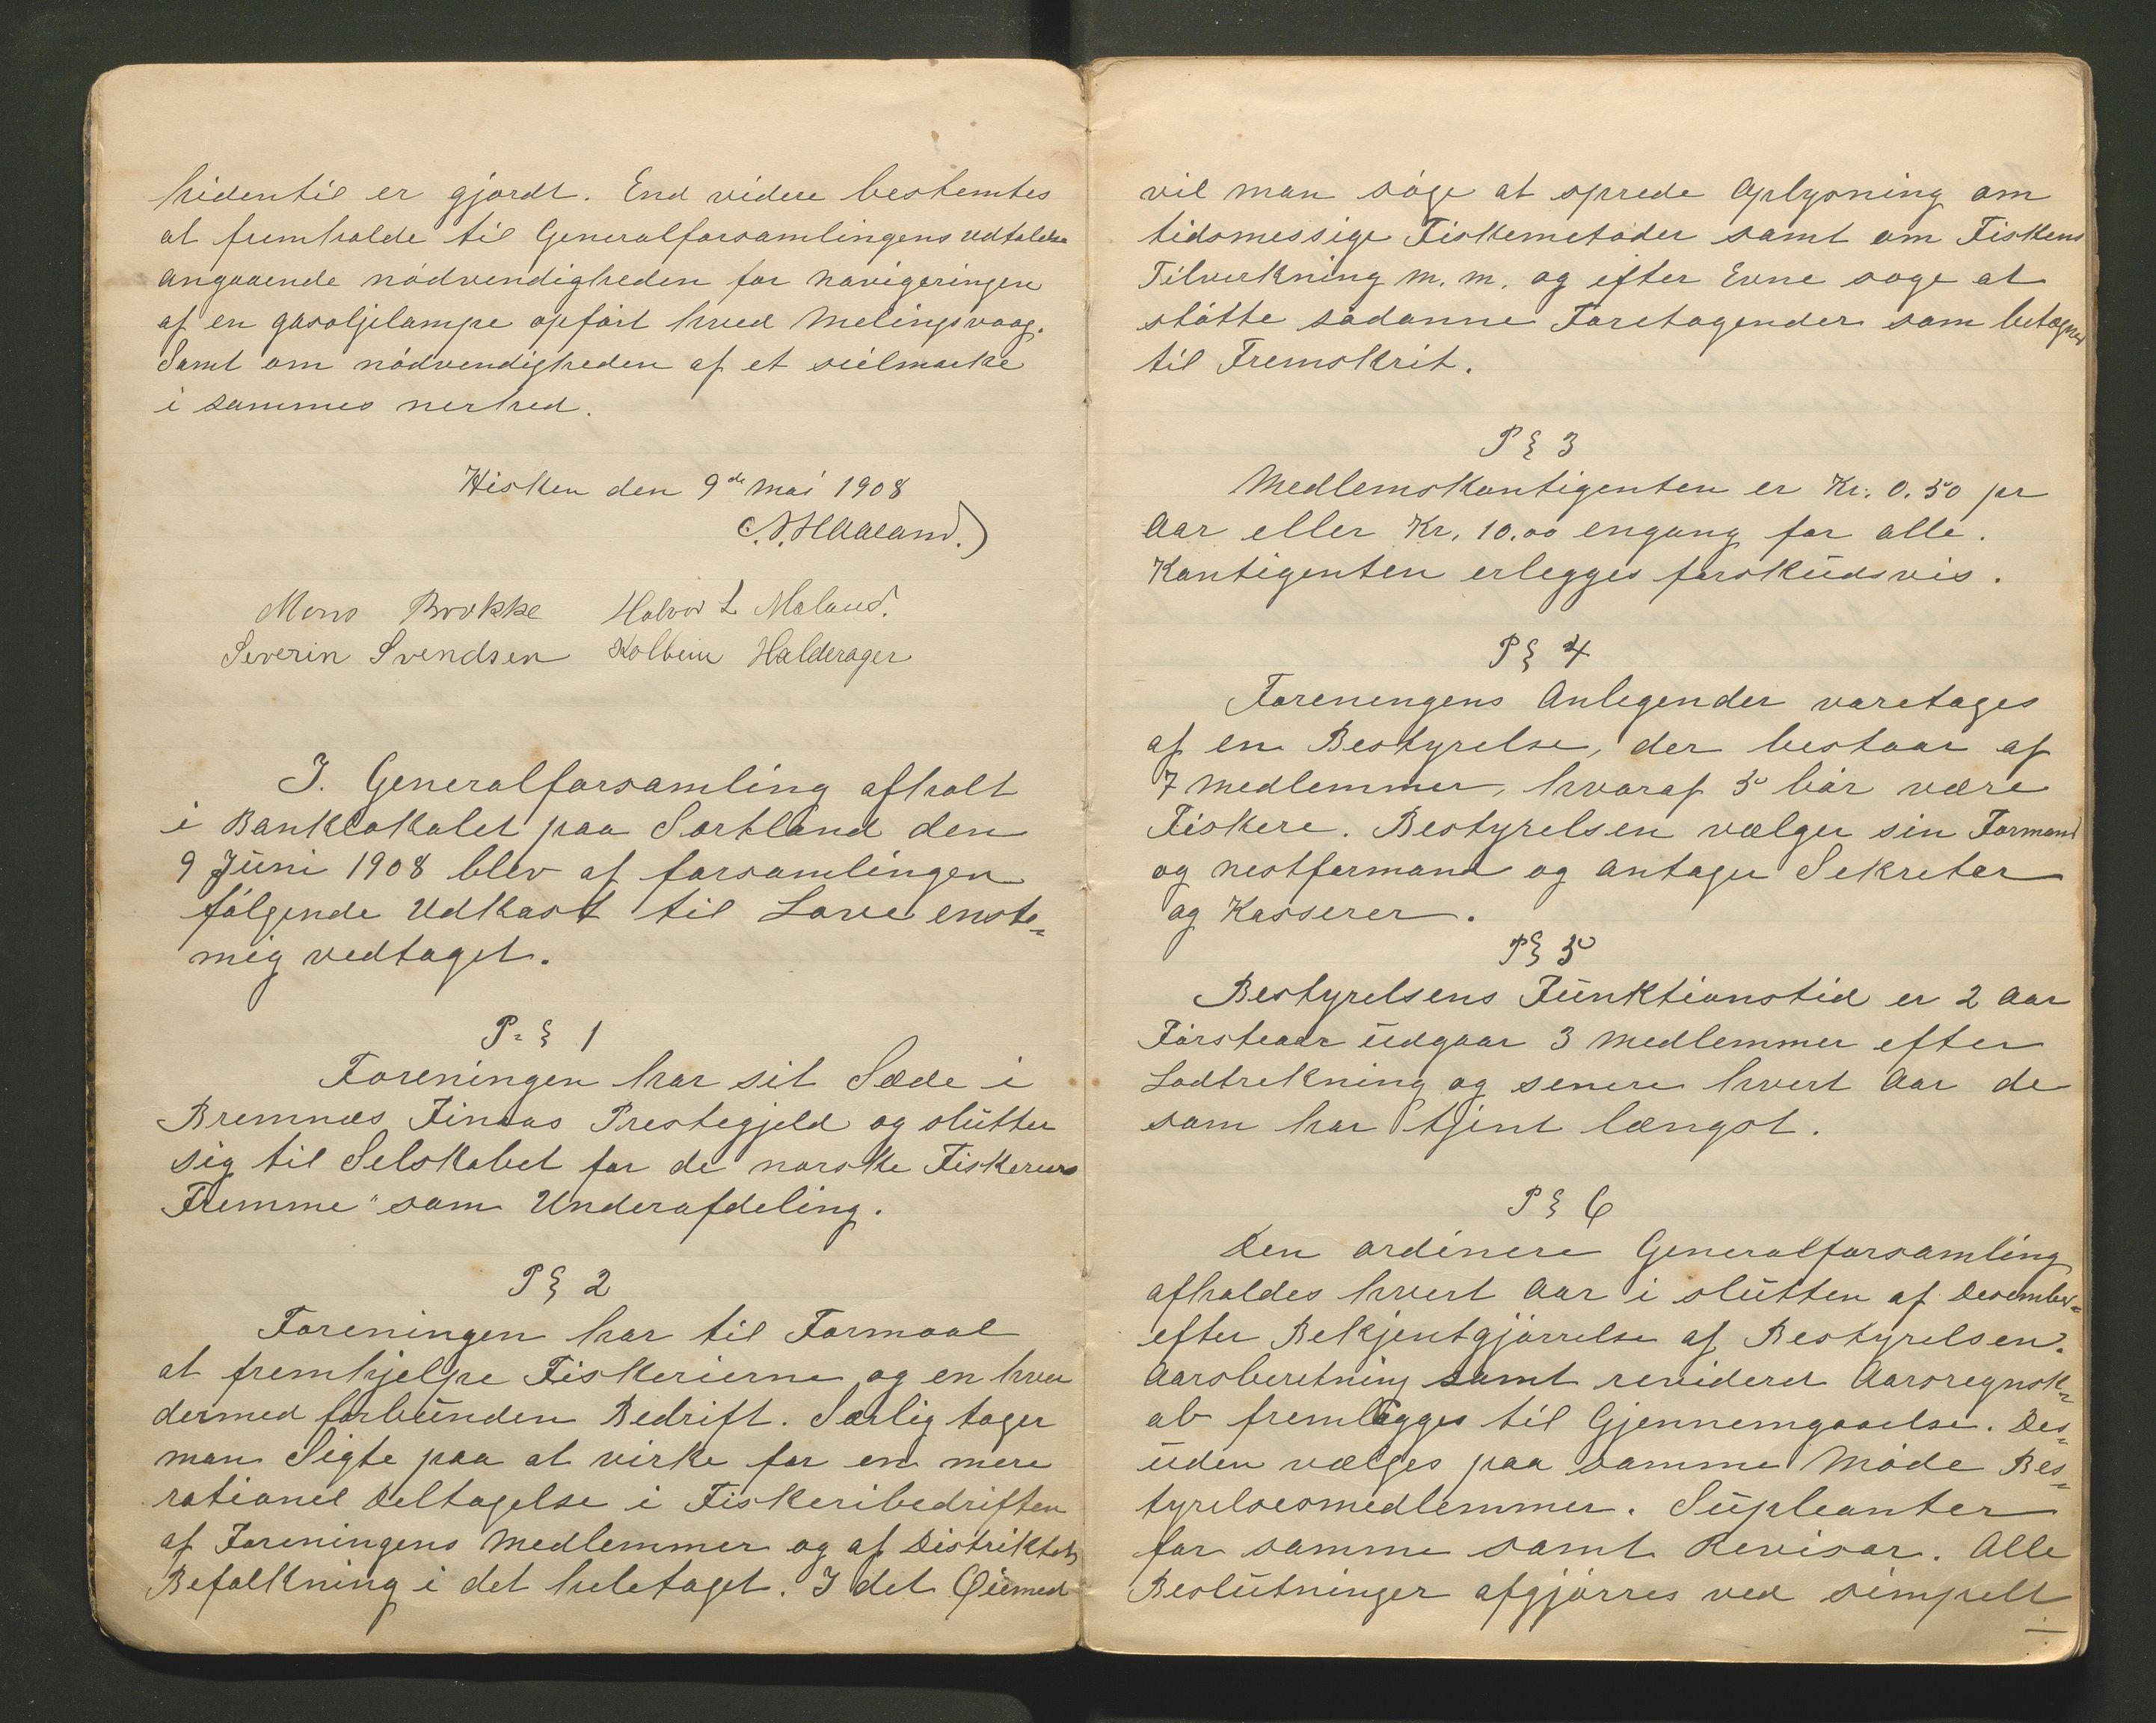 hidentil er gjordt. End videre bestemtes
at fremholde til Generalforsamlingens udtalelse
angaaende nödvendigheden for navigeringen
af en gasoljelampe opfört hved Melingsvaag.
Samt om nödvendigheden af et seilmærke
i sammes nerhed.
Hisken den 9de Mai 1908
Haaland.)
Mons Brokke Halvor L Mæland.
Severin Svendsen Kolbein Halderager
I. Generalforsamling afholt
i Banklokalet paa Sortland den
9 Juni 1908 blev af forsamlingen
fölgende Udkast til Love enste=
mig vedtaget.
P. § 1
Foreningen har sit Sæde i
Bremnæs Finaas Prestegjeld og slutter
sig til Selskabet for de norske Fiskeriers
Fremme" som Underafdeling.
P § 2
Foreningen har til Formaal
at fremhjelpe Fiskerierne og en hver
dermed forbunden Bedrift. Særlig tager
man Sigte paa at virke for en mere
rationel Deltagelse i Fiskeribedriften
af Foreningens Medlemmer og af Distriktets
Befolkning i det heletaget. I det Öiemed
vil man söge at sprede Oplysning om
tidsmessige Fiskemetoder samt om Fiskens
Tilverkning m. m. og efter Evne söge at
stötte sådanne Foretagender som betegnes
til Fremskrit.
P § 3
Medlemskontigenten er Kr. 0.50 pr
Aar eller Kr. 10.00 engang for alle.
Kontigenten erlegges forskudsvis.
P § 4
Foreningens Anlegender varetages
af en Bestyrelse, der bestaar af
7 Medlemmer, hvoraf 5 bör være
Fiskere. Bestyrelsen vælger sin Formand
og nestformand og antager Sekretær
og Kasserer.
P § 5
Bestyrelsens Funktionstid er 2 Aar
Försteaar udgaar 3 Medlemmer efter
Lodtrekning og senere hvert Aar de
som har tjent længst.
P § 6
Den ordinere Generalforsamling
afholdes hvert Aar i slutten af December=
efter Bekjentgjörrelse af Bestyrelsen.
Aarsberetning samt revideret Aarsregnsk=
ab fremlægges til Gjennemgaaelse. Des=
uden vælges paa samme Möde Bes=
tyrelsesmedlemmer. Supleanter
for samme samt Revisor. Alle
Beslutninger afgjörres ved simpelt